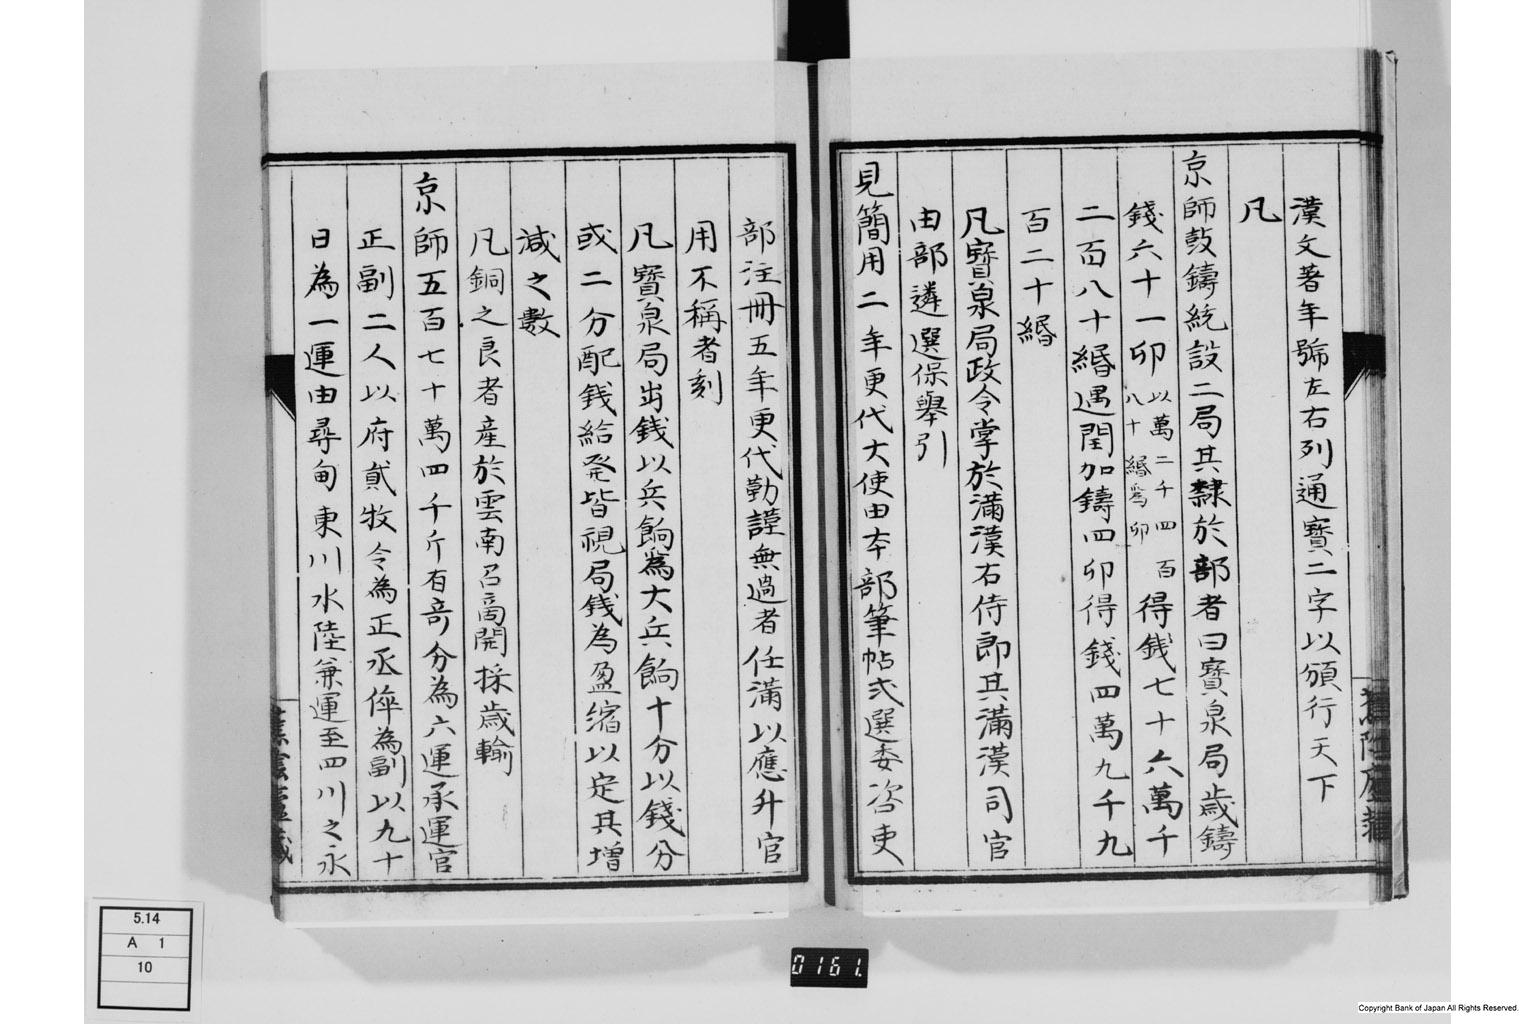 漢文著年號左右列通寶二字以頒行天下
凡
京師鼓鑄統設二局其隸於部者曰寶泉局歲鑄
錢六十一卯以萬二千四百八十緡爲卯得錢七十六萬千
二百八十緡遇閏加鑄四卯得錢四萬九千九
百二十緡
凡寶泉局政令掌於滿漢右侍郎其滿漢司官
由部遴選保舉引
見簡用二年更代大使由本部筆帖式選委咨吏
部注冊五年更代勤謹無過者任滿以應升官
用不稱者刻
凡寶泉局出錢以兵餉爲大兵餉十分以錢分
或二分配錢給發皆視局錢為盈縮以定其增
減之數
凡銅之良者產於雲南召商開採歲輸
京師五百七十萬四千斤有奇分為六運承運官
正副二人以府貳牧令為正丞倅為副以九十
日為一運由尋甸東川水陸兼運至四川之永
5.14
A 1
10
0161.
Copyright Bank of Japan All Rights Reserved.